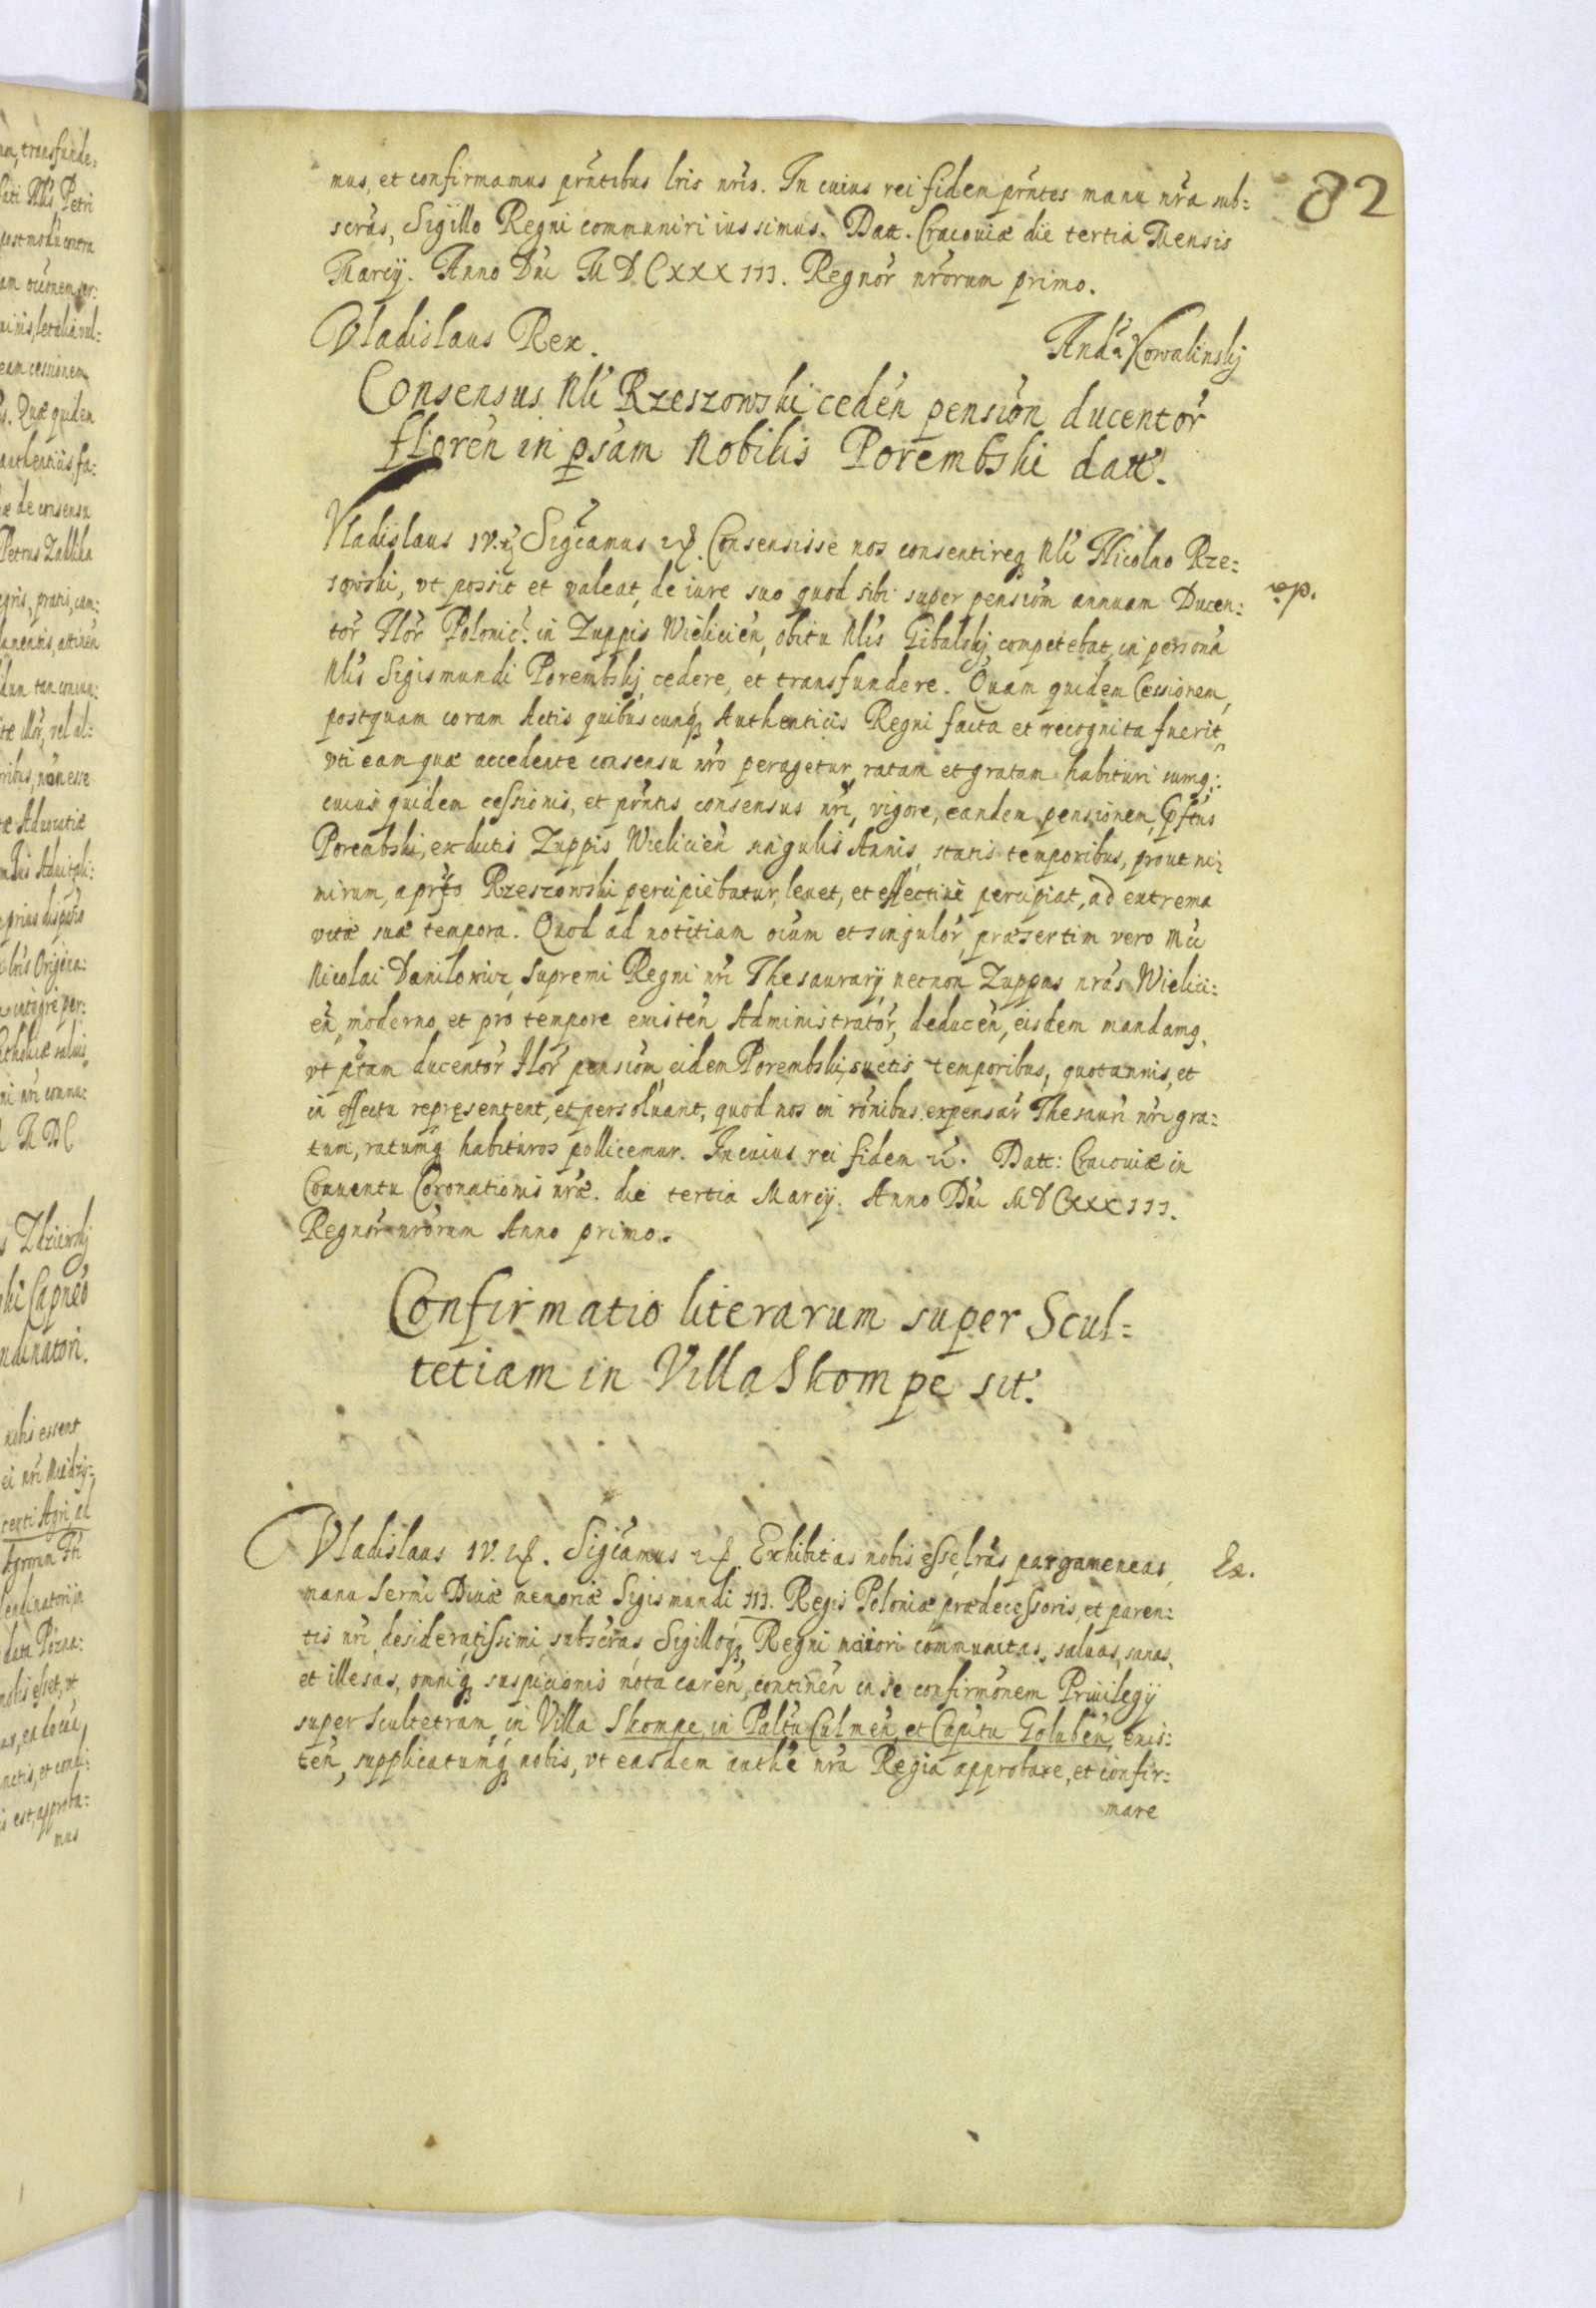 82
mus, et confirmamus prntibus lris nris. In cuius rei fidem prntes manu nra sub=
scras, Sigillo Regni communiri iussimus. Datt. Cracouiæ die tertia Mensis
Marcij. Anno Dni M D C XXX III. Regnor nrorum primo.
Vladislaus Rex.
Andr. Kowalinskj
Consensus Nli Rzeszowski ceden pension ducentor
floren in psam Nobilis Porembski datt.
Vladislaus IV. etc. Sigcamus etc. Consensisse nos consentireq Nli Nicolao Rze=
sowski, vt possit et valeat, de iure suo quod sibi super pensiom annuam Ducen=
tor Flor Polonic. in Zuppis Wielicien, obitu Nlis Gibalskj competebat, in persona
Nlis Sigismundi Porembskj cedere, et transfundere. Quam quidem Cessionem,
postquam coram Actis quibuscunq Authenticis Regni facta et recognita fuerit,
vti eam quæ accedente consensu nro peragetur, ratam et gratam habituri sumq:
cuius quidem cessionis, et prntis consensus nri, vigore, eandem pensionem, Pftus
Porembski, ex dictis Zuppis Wielicien singulis Annis, statis temporibus, prout ni=
mirum, a prfto Rzeszowski percipiebatur, leuet, et effectiue percipiat, ad extrema
vitæ suæ tempora. Quod ad notitiam oium et singulor, præsertim vero Mci
Nicolai Danilowicz, Supremi Regni nri Thesaurarij, necnon Zuppas nras Wielici=
en, moderno et pro tempore existen Administrator, deducen, eisdem mandamq.
vt pftam ducentor Flor pensiom, eidem Porembski, suetis temporibus, quotannis, et
in effectu repręsentent, et persoluant, quod nos in ronibus expensar Thesauri nri gra=
tum, ratumq habituros pollicemur. In cuius rei fidem etc. Datt: Cracouiæ in
Conuentu Coronationis nræ. die tertia Marcij. Anno Dni M D C XXX III.
Regnor nrorum Anno primo.
Confirmatio literarum super Scul=
tetiam in Villa Skompe sit.
Vladislaus IV. etc. Sigcamus etc. Exhibitas nobis esse, lras pargameneas,
manu Sermi Diuæ memoriæ Sigismundi III. Regis Poloniæ prædecessoris, et paren=
tis nri desideratissimi, subscras, Sigilloq, Regni maiori communitas, saluas, sanas,
et illesas, omniq suspicionis nota caren, continen in se confirmonem Priuilegij
super Scultetiam, in Villa Skompe, in Paltu Culmen, et Capitu Goluben, exis=
ten, supplicatumq nobis, vt easdem authe nra Regia approbare, et confir=
mare